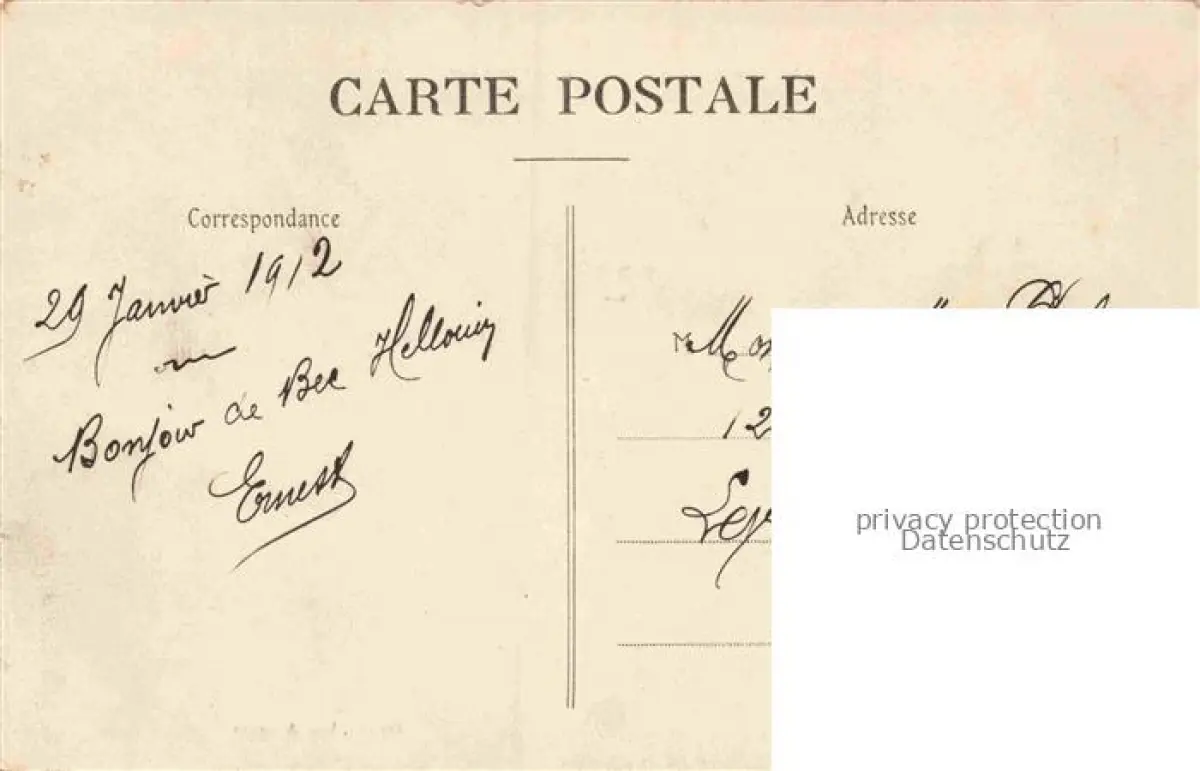 CARTE POSTALE
Correspondance
29 Janvier 1912
Bonjour de Bec Hellouin
Ernest
Adresse
12
privacy protection
Datenschutz